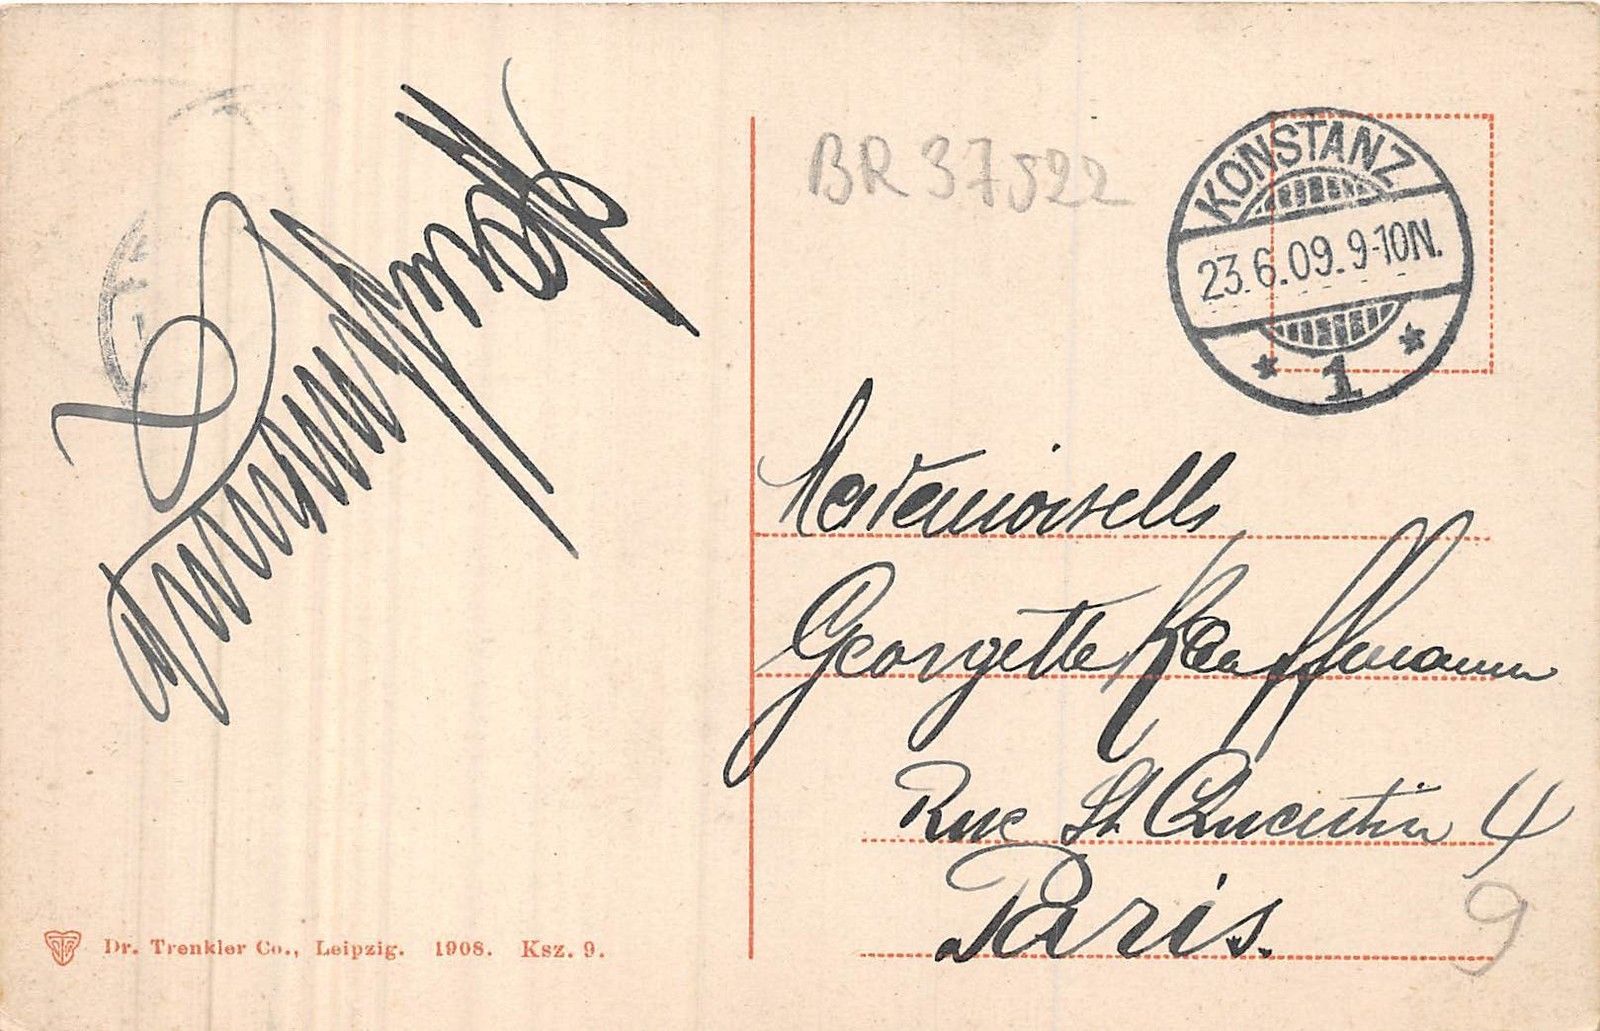 BR 37522
KONSTANZ
23.6.09.9-10N.
* 1 *
Mademoiselle
Georgette Kauffmann
Rue St Quentin 4
Paris.
9
Dr. Trenkler Co., Leipzig. 1908. Ksz. 9.